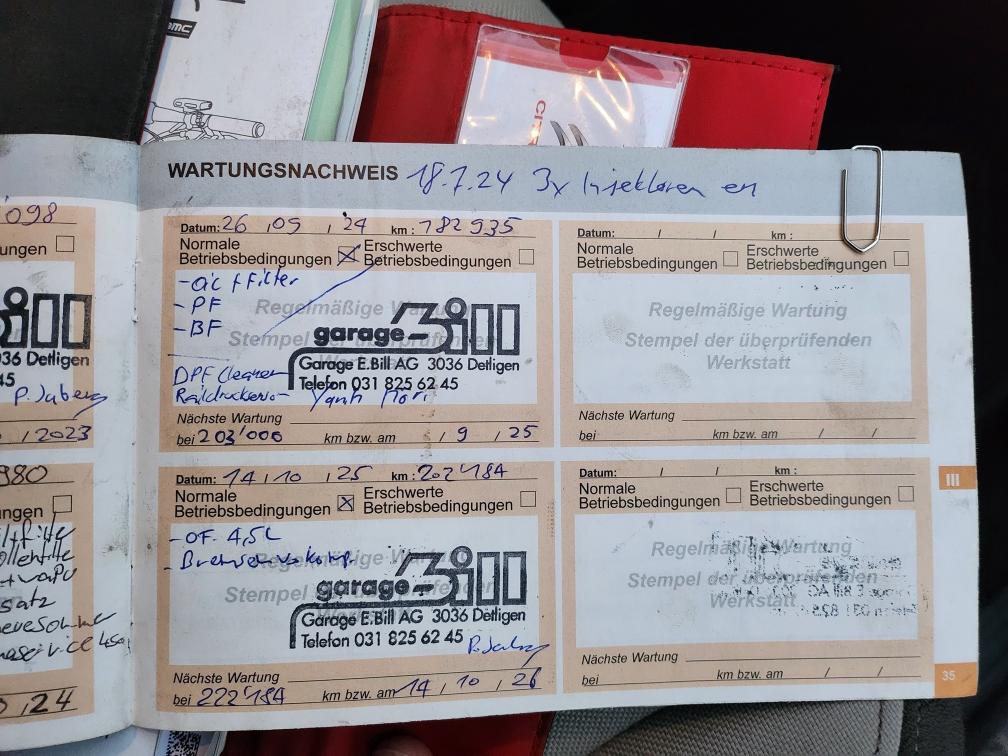 WARTUNGSNACHWEIS 18.7.24 3x Injektoren
Datum: 26 / 09 / 24 km: 182 935
Normale Betriebsbedingungen
Erschwerte Betriebsbedingungen
- PF
- BF
Regelmäßige Wartung
Stempel der überprüfenden
Werkstatt
garage Bill
Garage E.Bill AG 3036 Detligen
Telefon 031 825 62 45
DPF Cleaner
Nächste Wartung
bei 203'000 km bzw. am / 9 / 25
Datum: 14 / 10 / 25 km: 202'184
Normale Betriebsbedingungen
Erschwerte Betriebsbedingungen
- OF 4,5L
Regelmäßige Wartung
Stempel der überprüfenden
garage Bill
Garage E.Bill AG 3036 Detligen
Telefon 031 825 62 45
Nächste Wartung
bei 222'184 km bzw. am 14 / 10 / 26
Datum: / / km:
Normale Betriebsbedingungen
Erschwerte Betriebsbedingungen
Regelmäßige Wartung
Stempel der überprüfenden
Werkstatt
Nächste Wartung
bei km bzw. am / /
Datum: / / km:
Normale Betriebsbedingungen
Erschwerte Betriebsbedingungen
Regelmäßige Wartung
Stempel der überprüfenden
Werkstatt
Nächste Wartung
bei km bzw. am / /
III
35
'098
ungen
036 Detligen
45
P. Jaberg
/ 2023
980
ngen
satz
/ 24